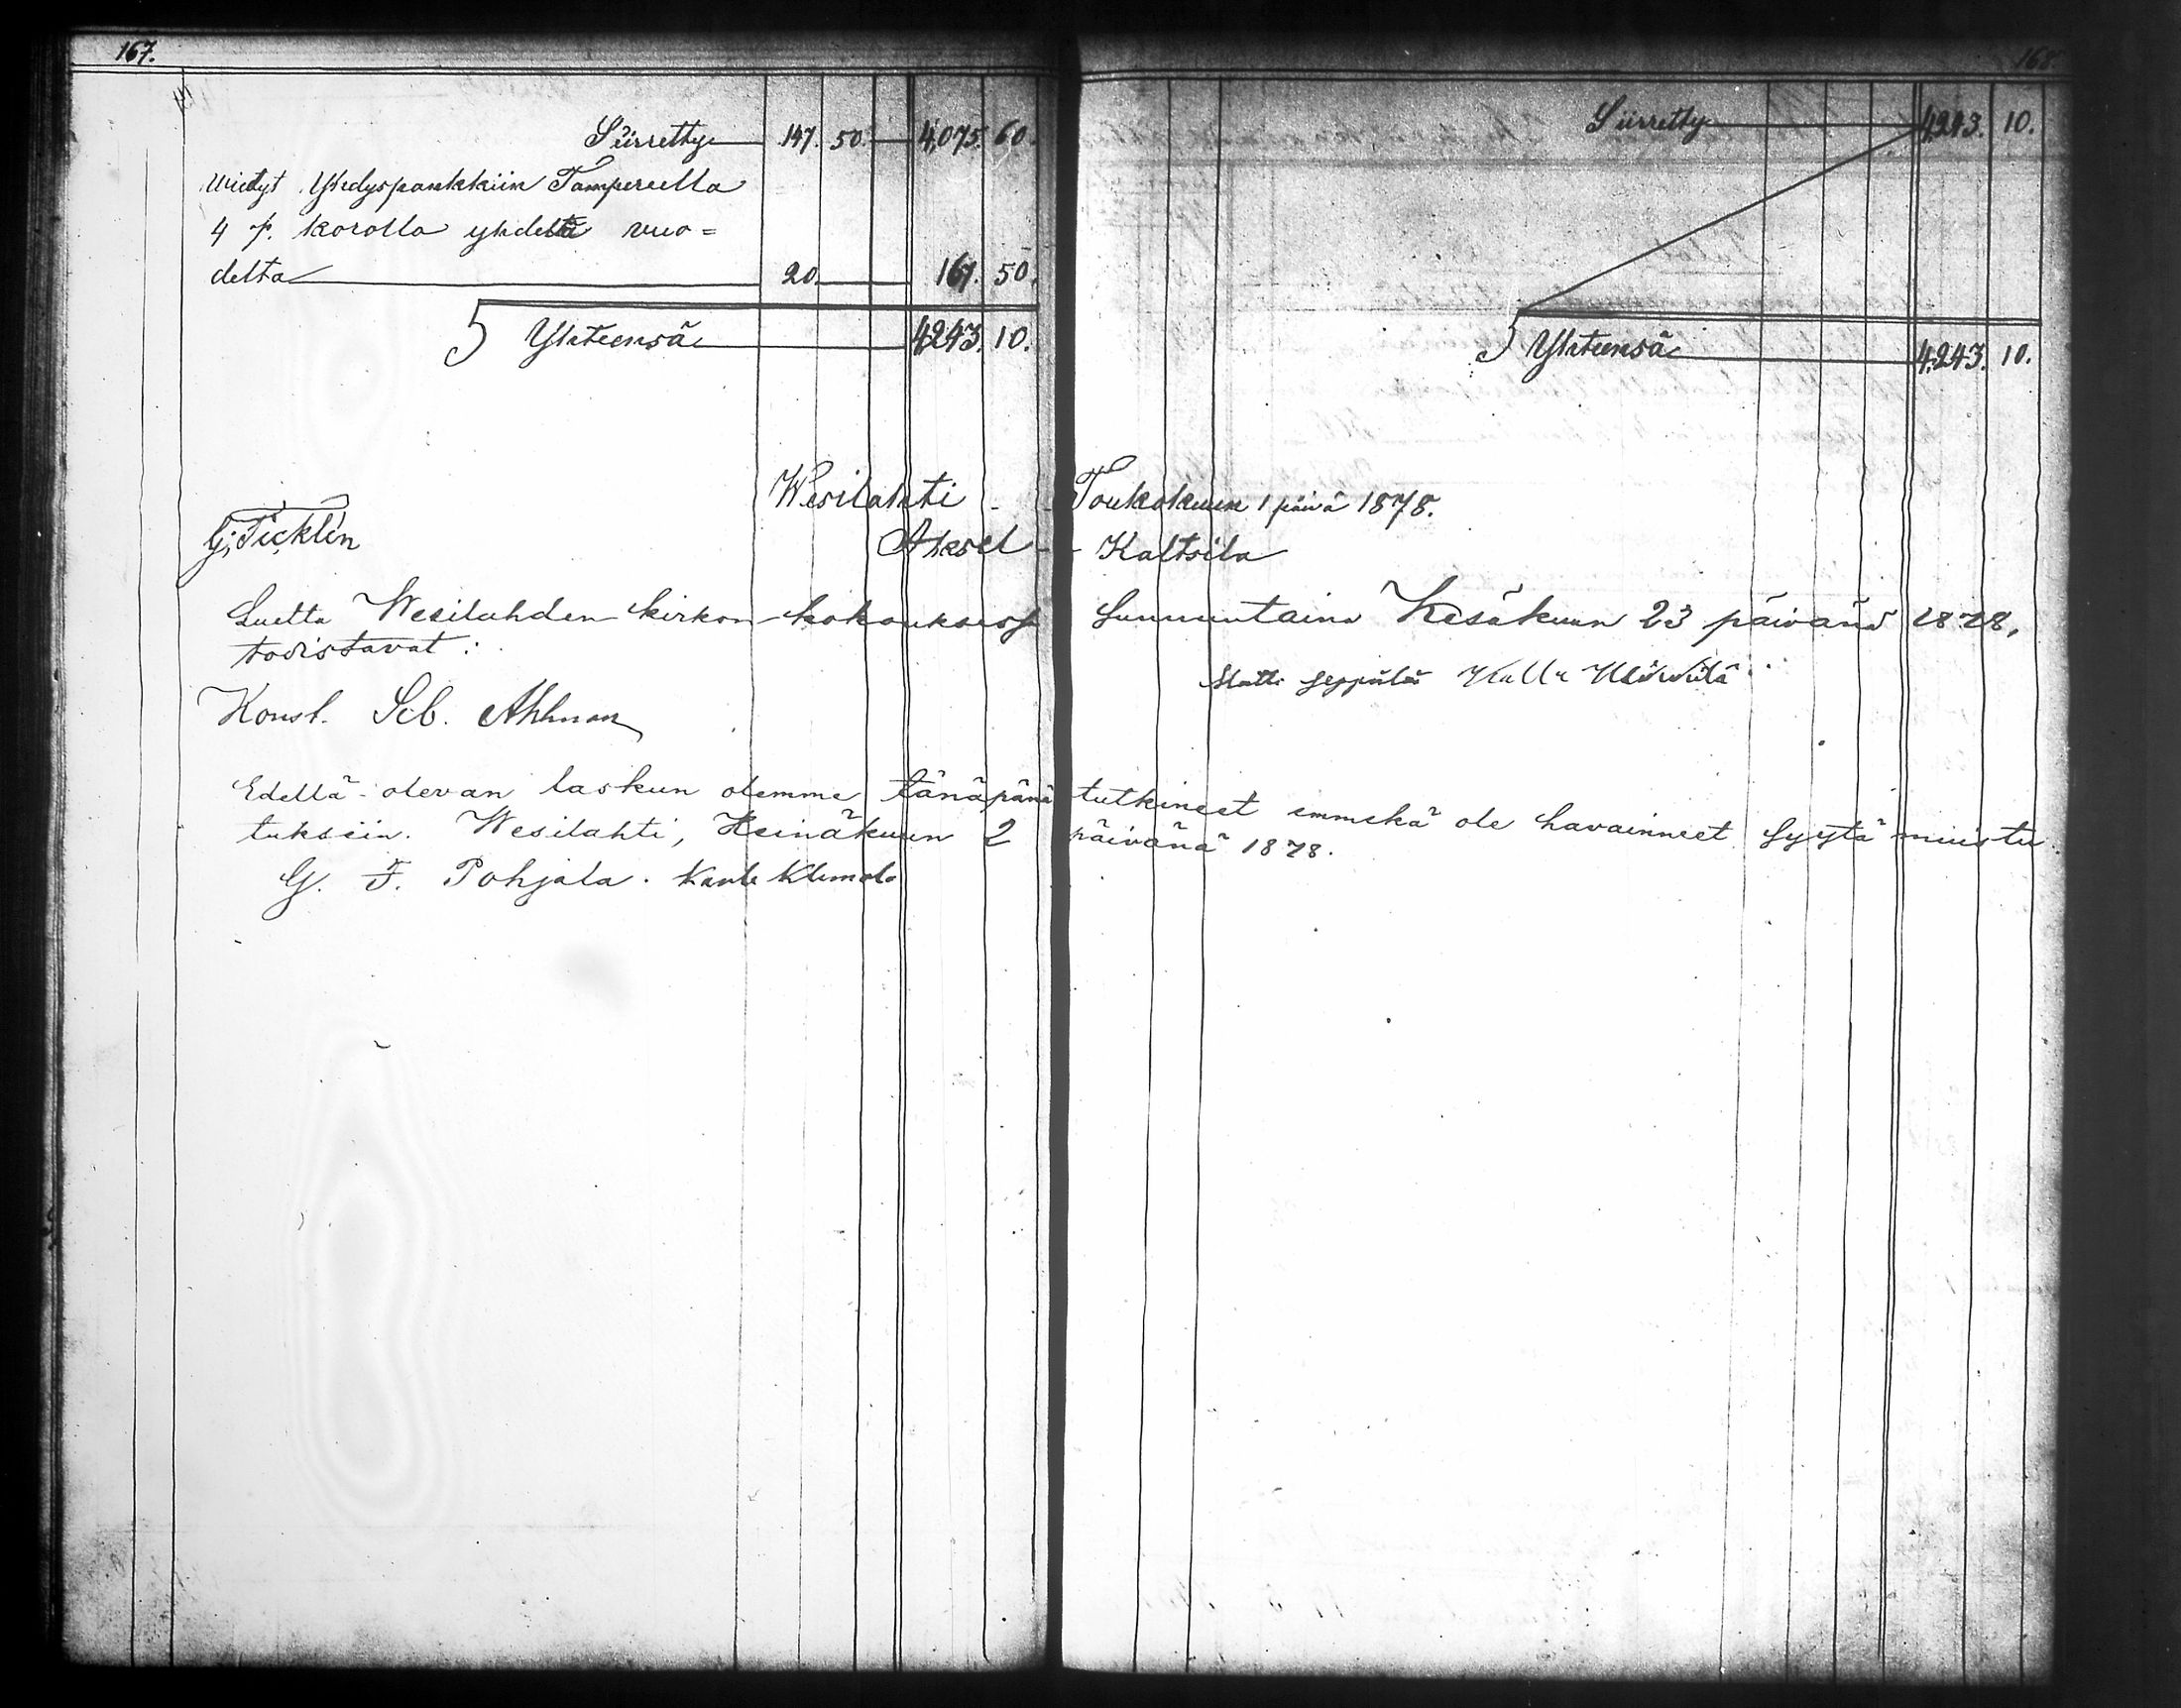 167.
Siirretty 147. 50. 4,075. 60.
Wiedyt Yhdyspankkiin Tampereella
4 p. korolla yhdeltä vuo=
delta 20. 167. 50.
Yhteensä 4243. 10.
168
Siirretty 4243. 10.
Yhteensä 4,243. 10.
Wesilahti - - Toukokuun 1 päivä 1878.
G. Ticklén Aksel - - Kaltsila
Luettu Wesilahden kirkon-kokouksessa Sunnuntaina Kesäkuun 23 päivänä 1878,
todistavat:
Matti Seppälä Kalle
Konst. Seb. Ahlman
Edellä-olevan laskun olemme tänäpänä tutkineet emmekä ole havainneet syytä muistu
tuksiin. Wesilahti, Heinäkuun 2 päivänä 1878.
G. F. Pohjala. Kaarle Klemola